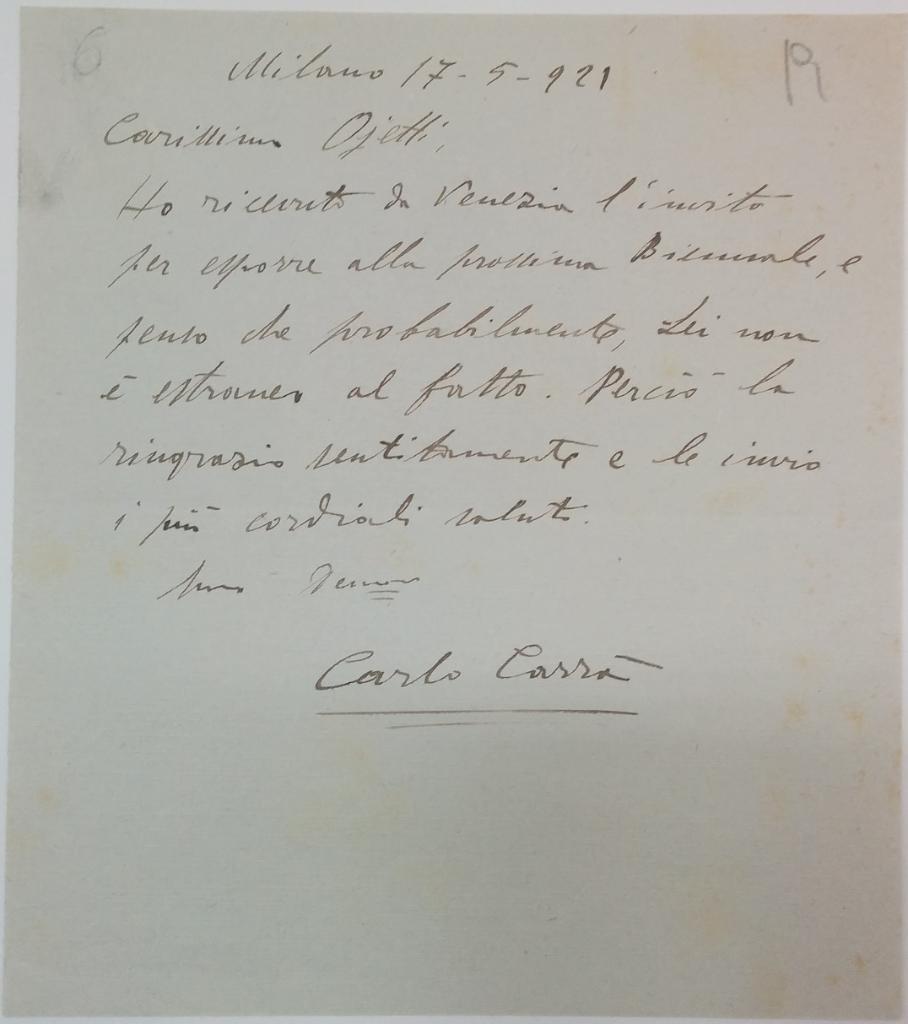 6
R
Milano 17-5-921
Carissimo Ojetti,
Ho ricevuto da Venezia l'invito
per esporre alla prossima Biennale, e
penso che probabilmente, Lei non
è estraneo al fatto. Perciò la
ringrazio sentitamente e le invio
i più cordiali saluti.
suo
Carlo Carrà